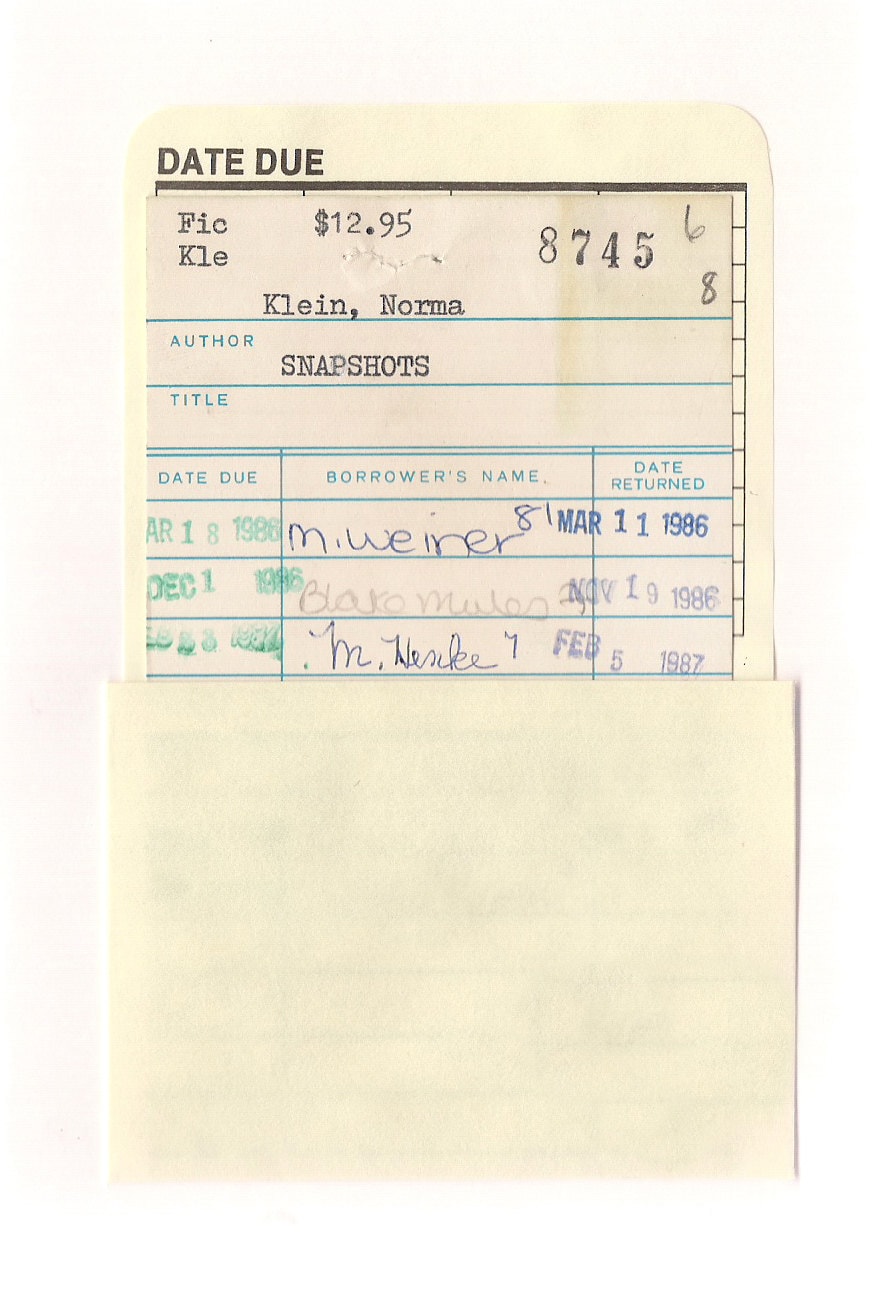 DATE DUE
Fic $12.95 8745 6
Kle 8
Klein, Norma
AUTHOR
SNAPSHOTS
TITLE
DATE DUE BORROWER'S NAME DATE RETURNED
AR 18 1986 M. Weiner 81 MAR 11 1986
DEC 1 1986 Blake NOV 19 1986
M. 7 FEB 5 1987